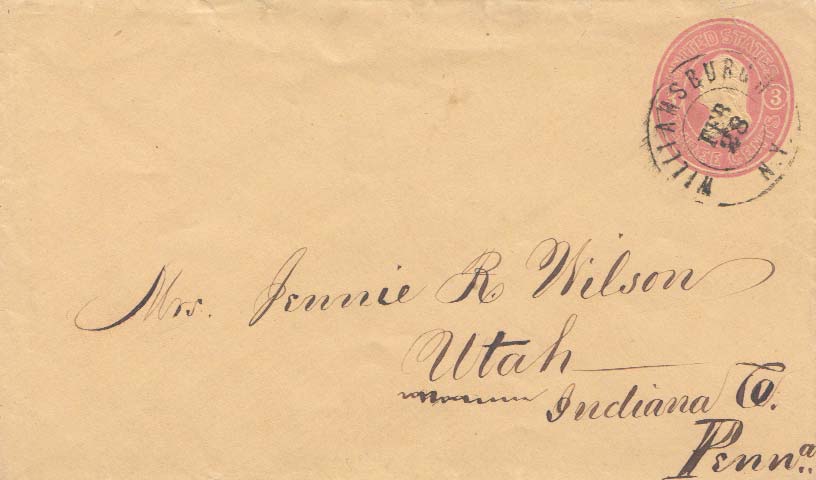 UNITED STATES
3
THREE CENTS
WILLIAMSBURGH
FEB
28
N.Y.
Mrs. Jennie R. Wilson
Utah
Indiana Co.
Penna.